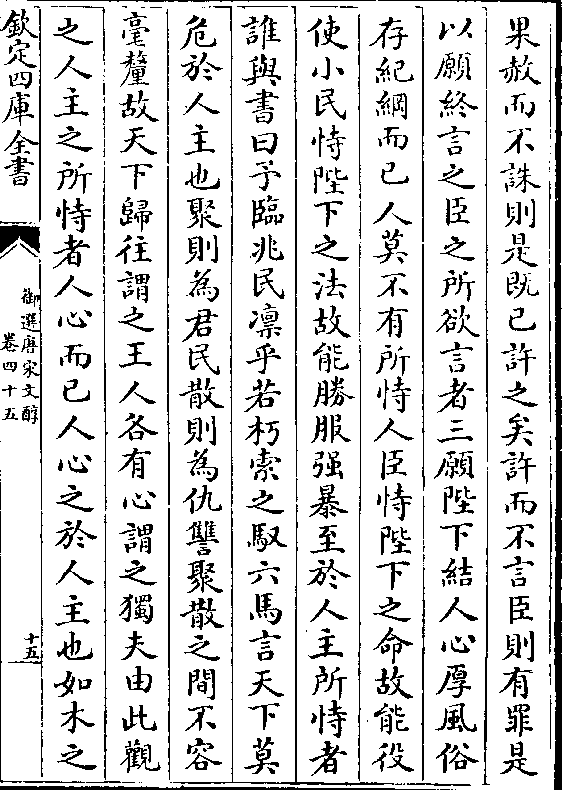 果赦而不誅則是既已許之矣許而不言臣則有罪是
以願終言之臣之所欲言者三願陛下結人心厚風俗
存紀綱而已人莫不有所恃人臣恃陛下之命故能役
使小民恃陛下之法故能勝服强暴至於人主所恃者
誰與書曰予臨兆民凛乎若朽索之馭六馬言天下莫
危於人主也聚則為君民散則為仇讐聚散之間不容
毫釐故天下歸往謂之王人各有心謂之獨夫由此觀
之人主之所恃者人心而已人心之於人主也如木之
欽定四庫全書
御選唐宋文醇
卷四十五
十五